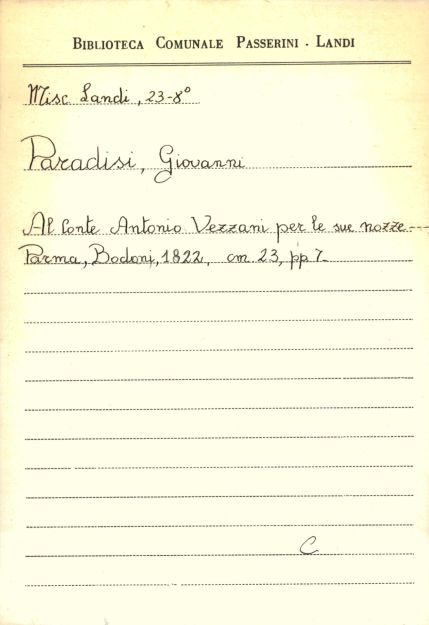 BIBLIOTECA COMUNALE PASSERINI - LANDI
Misc. Landi, 23-8°
Paradisi, Giovanni
Al Conte Antonio Vezzani per le sue nozze---
Parma, Bodoni, 1822, cm 23, pp 7-
C